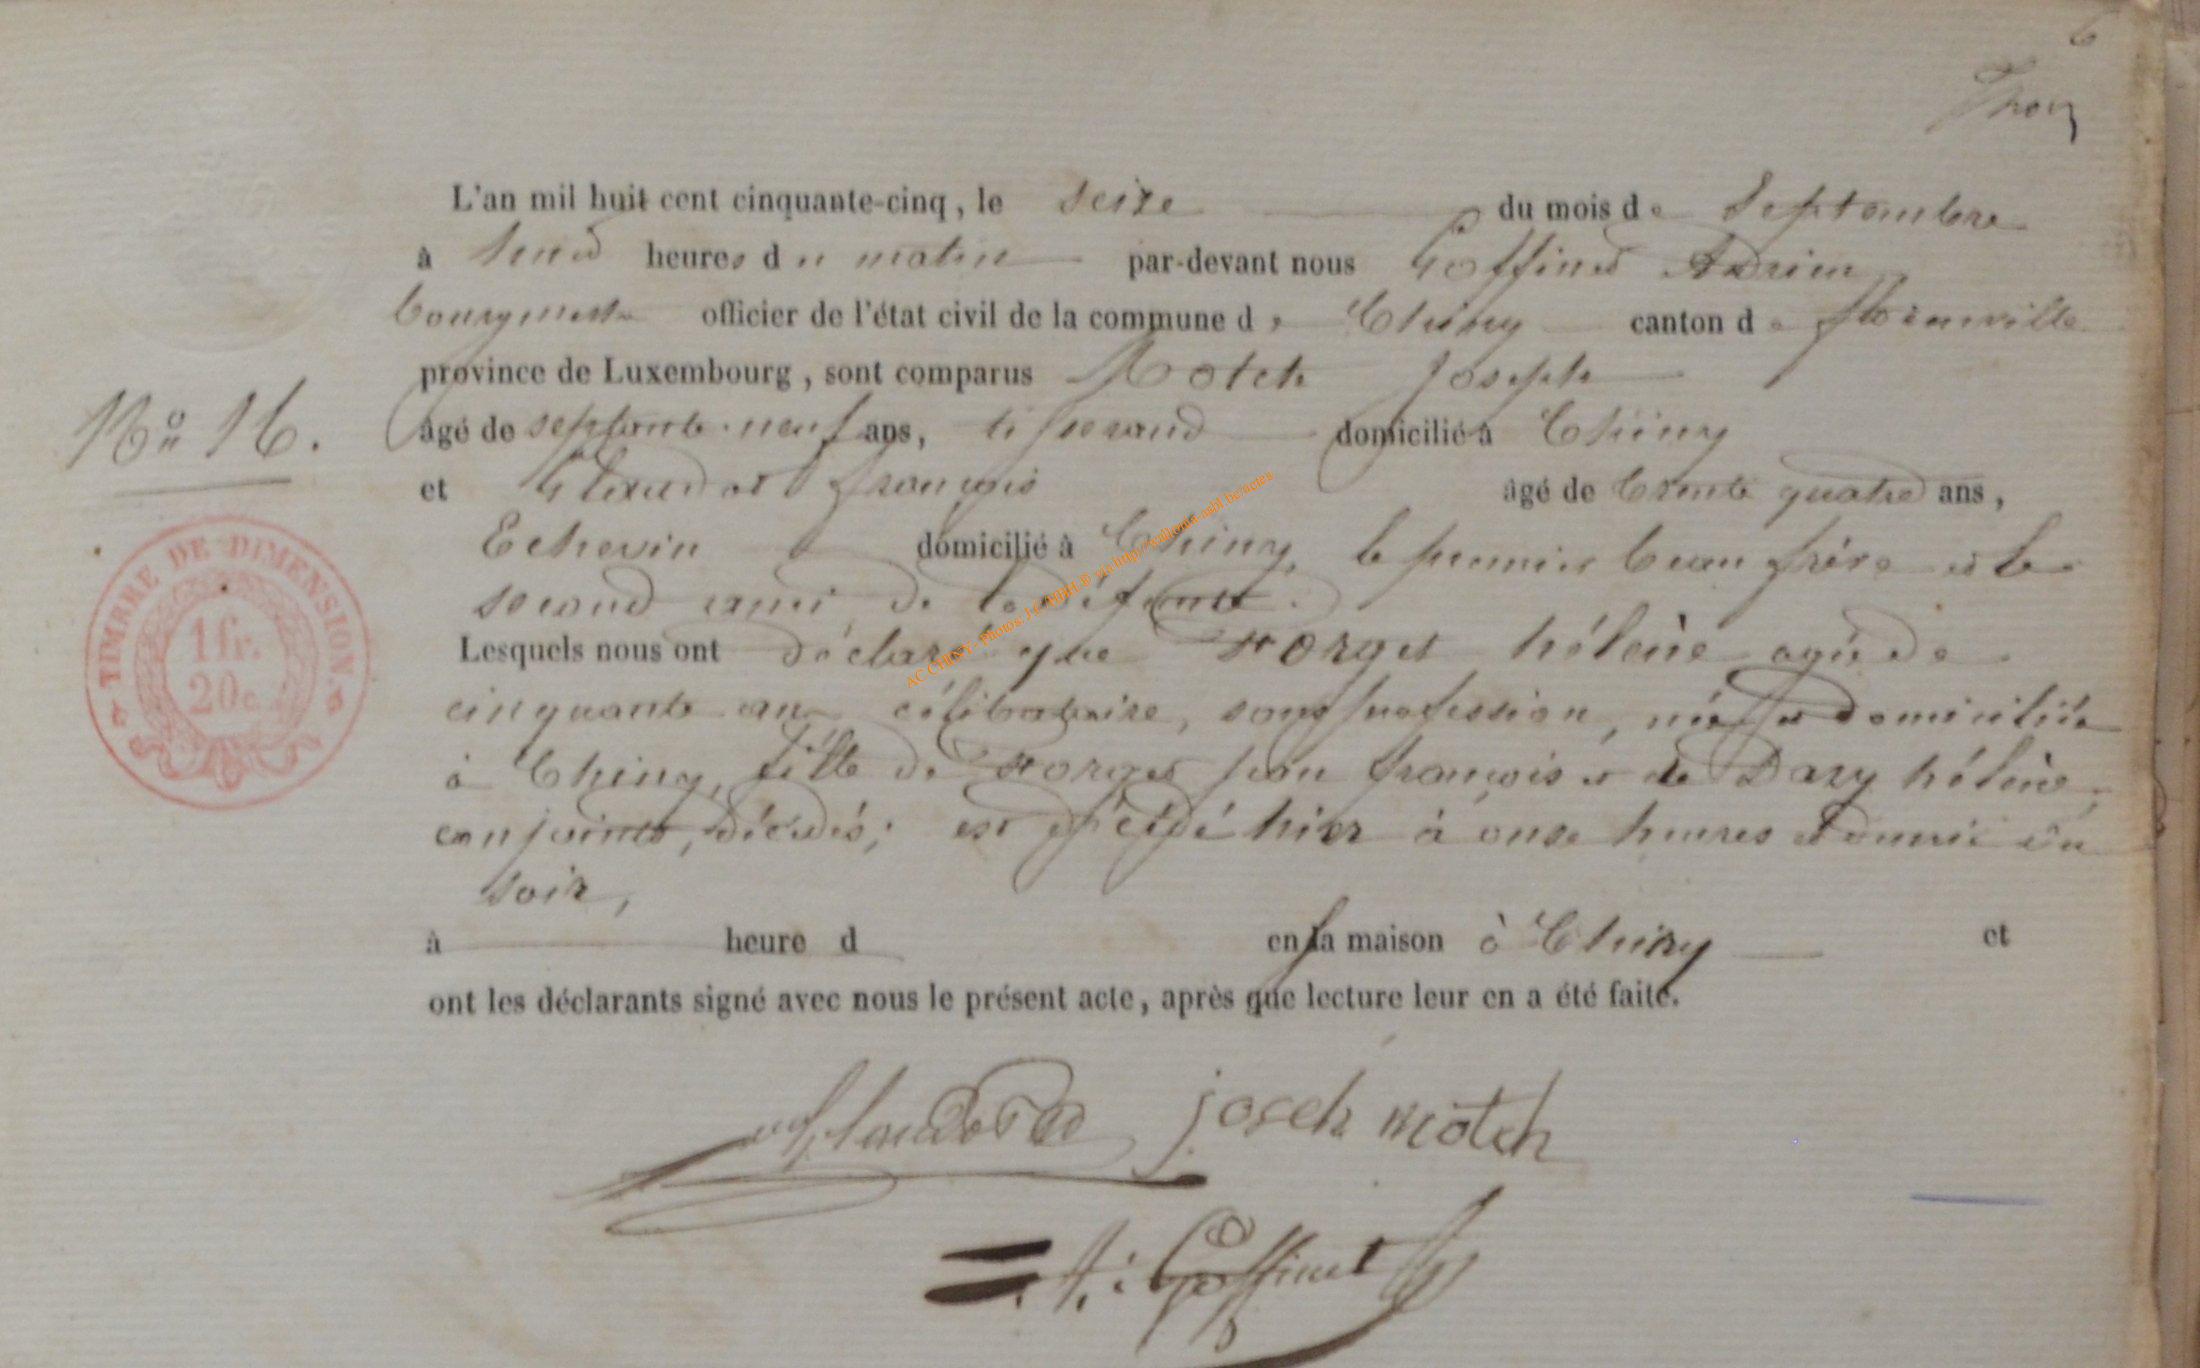 6
L'an mil huit cent cinquante-cinq, le seize du mois de Septembre
à heures du matin par-devant nous Goffinet Adrien
bourgmestre officier de l'état civil de la commune de Chiny canton de florenville
province de Luxembourg, sont comparus Motch Joseph
No 16.
âgé de septante-neuf ans, tisserand domicilié à Chiny
et Glaudot françois âgé de trente quatre ans,
Echevin domicilié à Chiny, le premier beau frère et le
second ami de la défunte.
Lesquels nous ont déclaré que Forget hélène agée de
cinquante ans célibataire, sans profession, née et domiciliée
à Chiny, fille de Forget jean françois et de Dazy hélène,
conjoints, décédés; est décédé hier à onze heures et demie du
soir,
à heure d en sa maison à Chiny et
ont les déclarants signé avec nous le présent acte, après que lecture leur en a été faite.
TIMBRE DE DIMENSION.
1 fr.
20c
AC CHINY- Photos J
Glaudot joseh motch
A: Goffinet